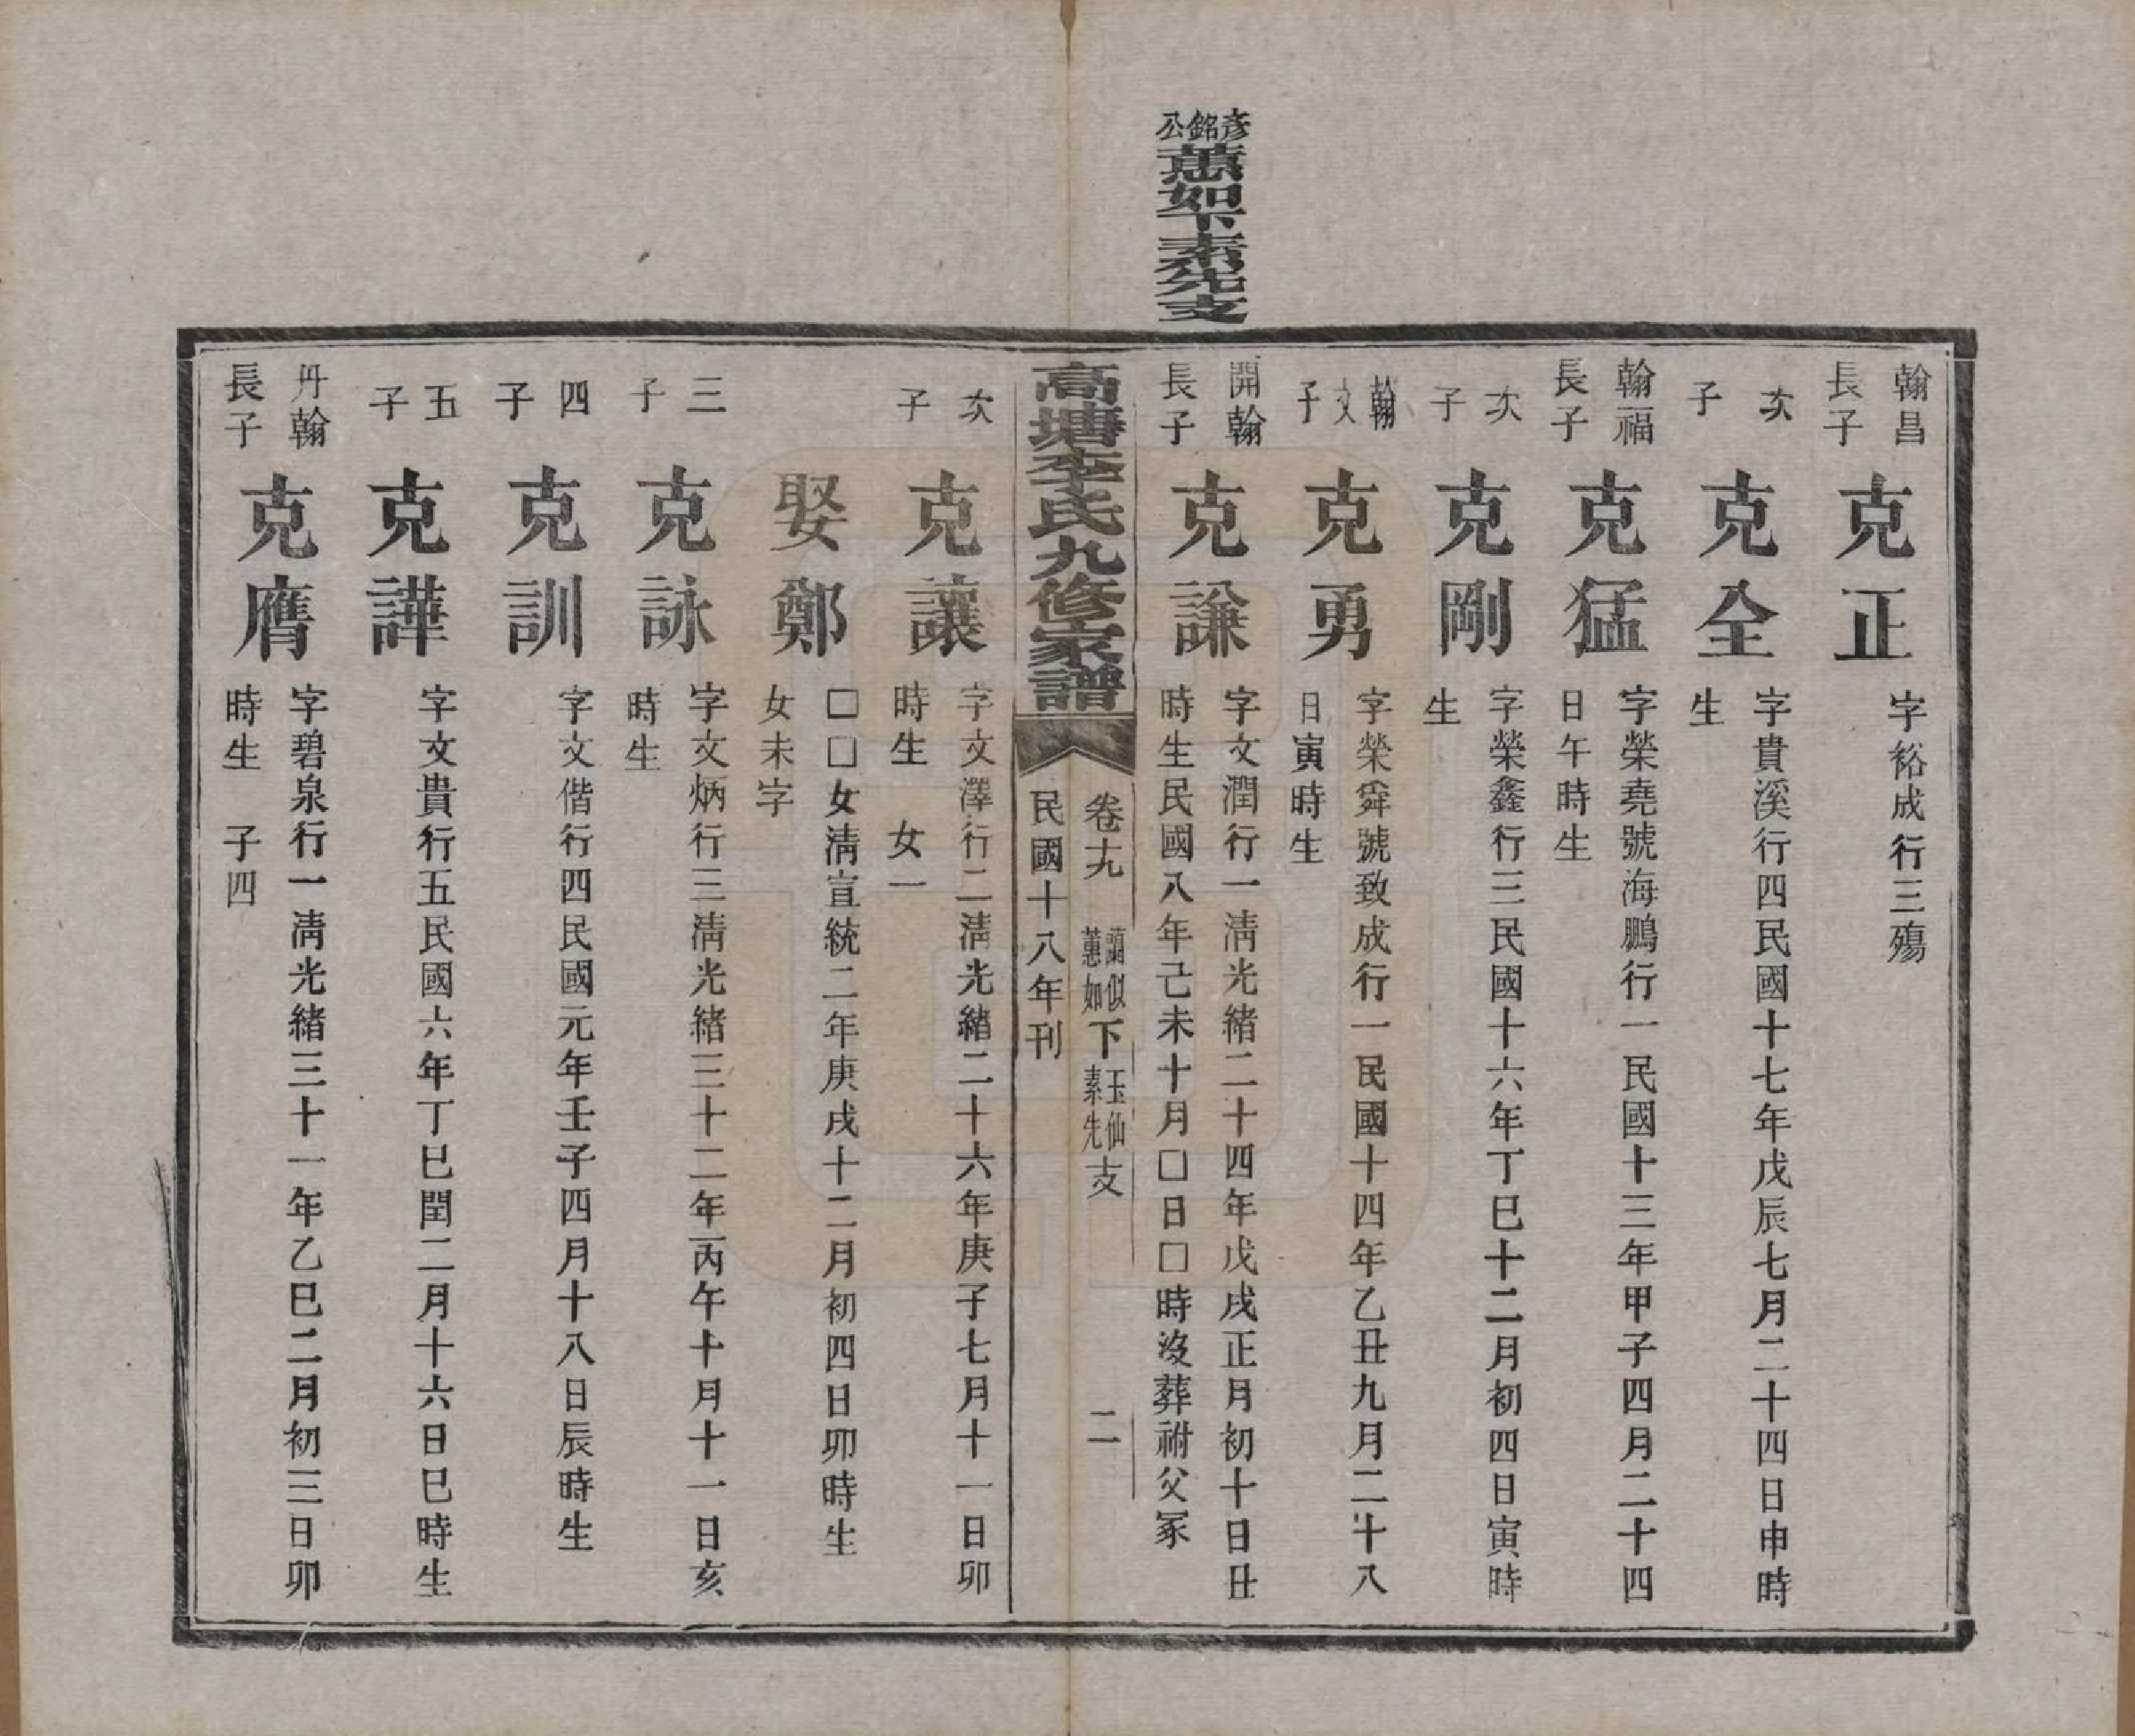 彥銘公蕙如下素先支
翰昌長子
克正
字裕成行三殤
次子
克全
字貴溪行四民國十七年戊辰七月二十四日申時
生
翰福長子
克猛
字榮堯號海鵬行一民國十三年甲子四月二十四
日午時生
次子
克剛
字榮鑫行三民國十六年丁巳十二月初四日寅時
生
翰文子
克勇
字榮舜號致成行一民國十四年乙丑九月二十八
日寅時生
開翰長子
克謙
字文潤行一淸光緒二十四年戊戌正月初十日丑
時生民國八年己未十月□日□時沒葬祔父冢
高塘李氏九修家譜
卷十九
蘭似
蕙如
下
玉仙
素先
支
二
民國十八年刊
次子
克讓
字文澤行二淸光緒二十六年庚子七月十一日卯
時生 女一
娶鄭
□□女淸宣統二年庚戌十二月初四日卯時生
女未字
三子
克詠
字文炳行三淸光緒三十二年丙午十月十一日亥
時生
四子
克訓
字文偕行四民國元年壬子四月十八日辰時生
五子
克譁
字文貴行五民國六年丁巳閏二月十六日巳時生
丹翰長子
克膺
字碧泉行一淸光緒三十一年乙巳二月初三日卯
時生 子四